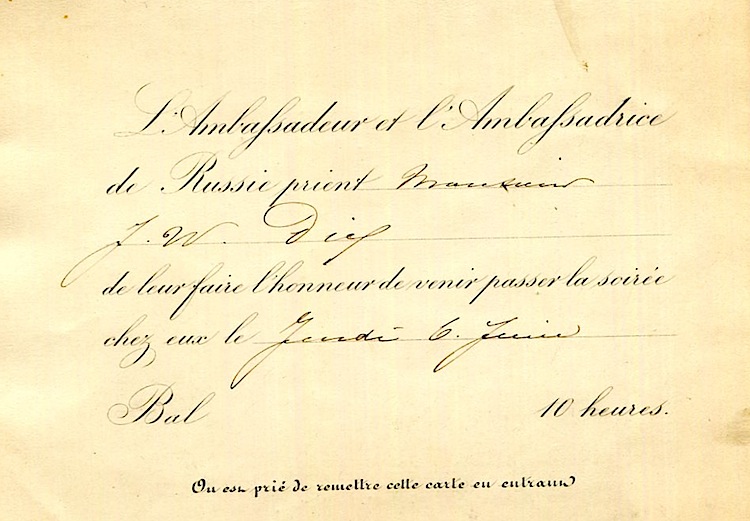 L'Ambassadeur et l'Ambassadrice
de Russie prient Monsieur
J. W.
de leur faire l'honneur de venir passer la soirée
chez eux le Jeudi 6. Juin
Bal 10 heures.
On est prié de remettre cette carte en entrant